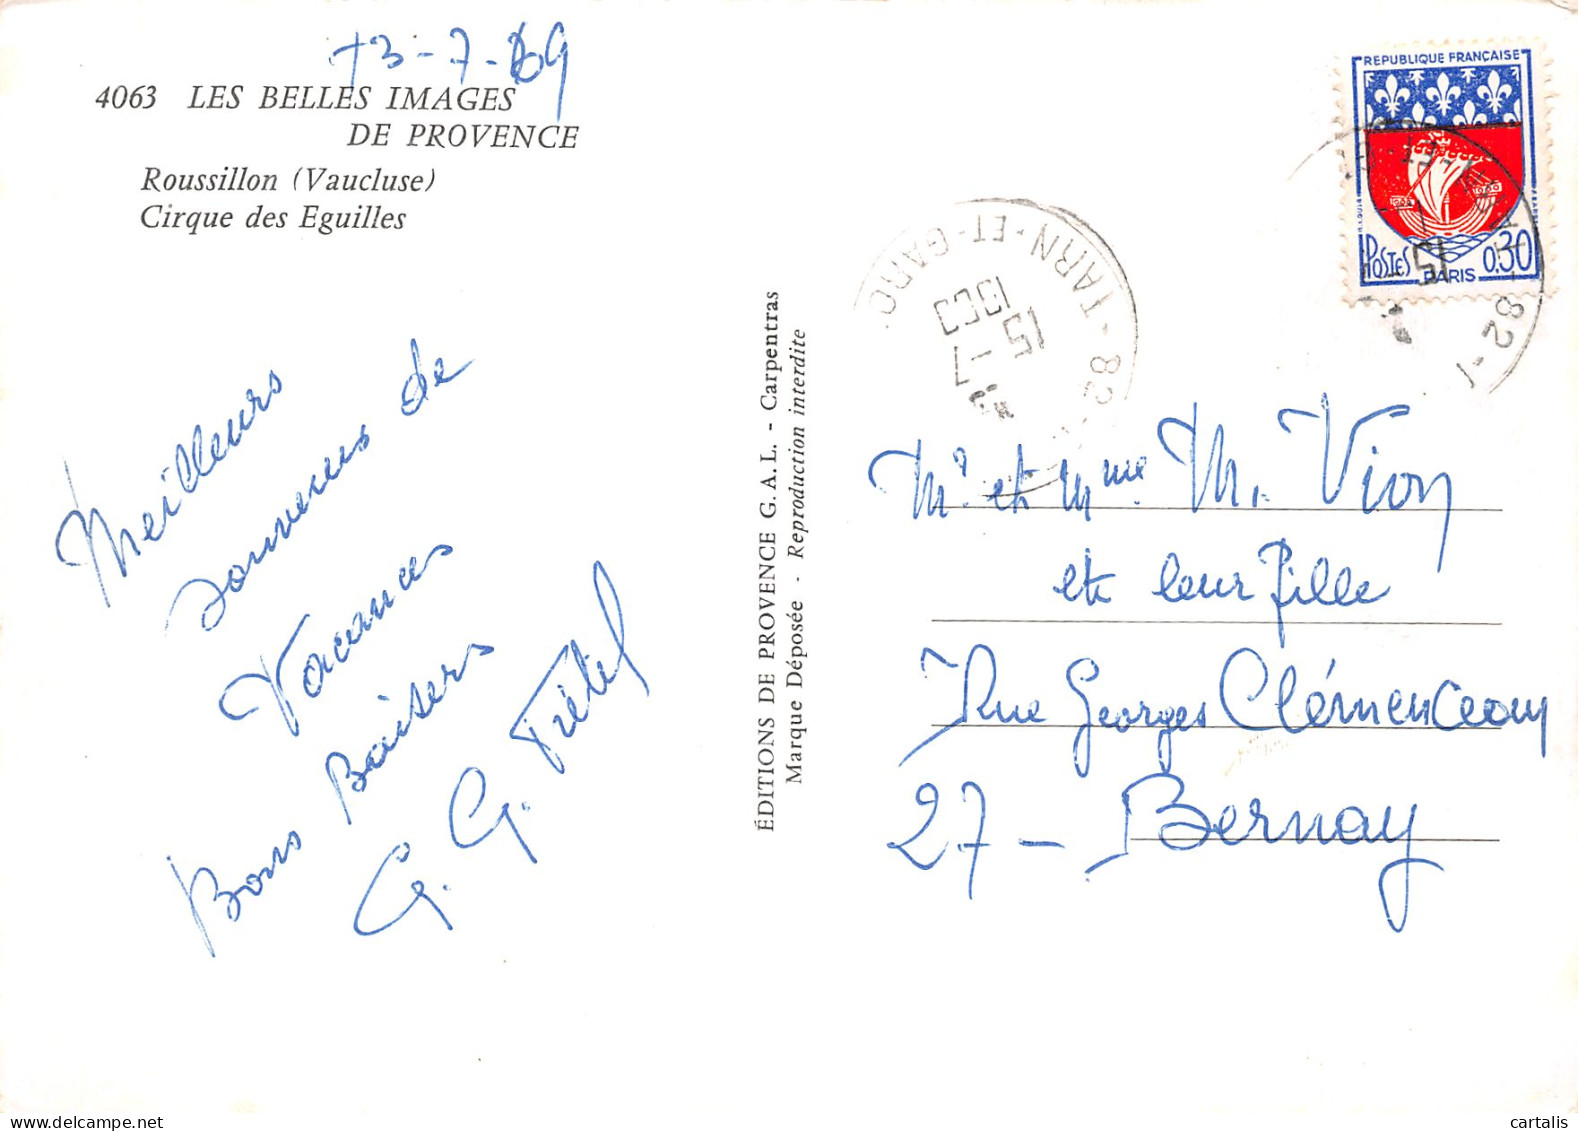 13-7-69
4063 LES BELLES IMAGES
DE PROVENCE
Roussillon (Vaucluse)
Cirque des Eguilles
Meilleurs
souvenirs de
Vacances
Bons Baisers
G. G.
ÉDITIONS DE PROVENCE G. A. L. - Carpentras
Marque Déposée - Reproduction interdite
REPUBLIQUE FRANÇAISE
POSTES
PARIS
0,30
82 - TARN-ET-GARO
15
-7
82
15
Mr et Mme M. Vion
et leur fille
Rue Georges Clémenceau
27 - Bernay
cartalis